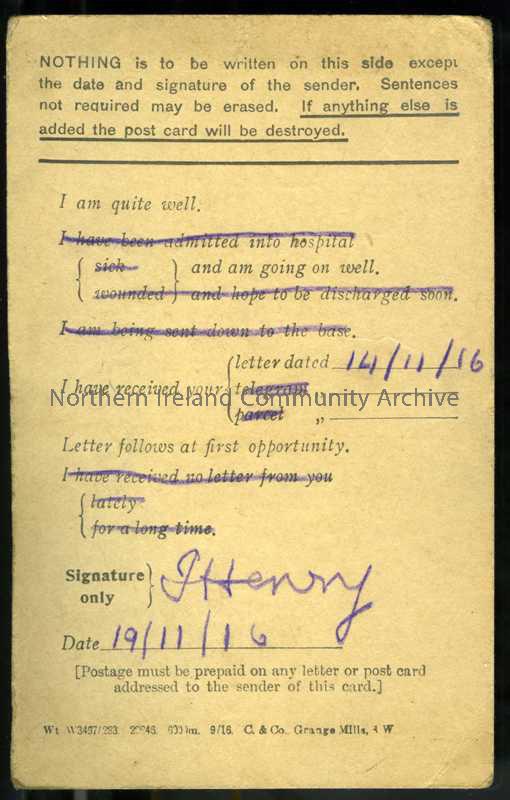 NOTHING is to be written on this side except
the date and signature of the sender. Sentences
not required may be erased. If anything else is
added the post card will be destroyed.
I am quite well.
I have been admitted into hospital
sick and am going on well.
wounded and hope to be discharged soon.
I am being sent down to the base.
letter dated 14/11/16
I have received your telegram
Northern Ireland Community Archive
parcel „
Letter follows at first opportunity.
I have received no letter from you
lately
for a long time.
Signature
only
Henry
Date 19/11/16
[Postage must be prepaid on any letter or post card
addressed to the sender of this card.]
Wt. W3497/293 9/16. C. & Co., Grange Mills, S.W.